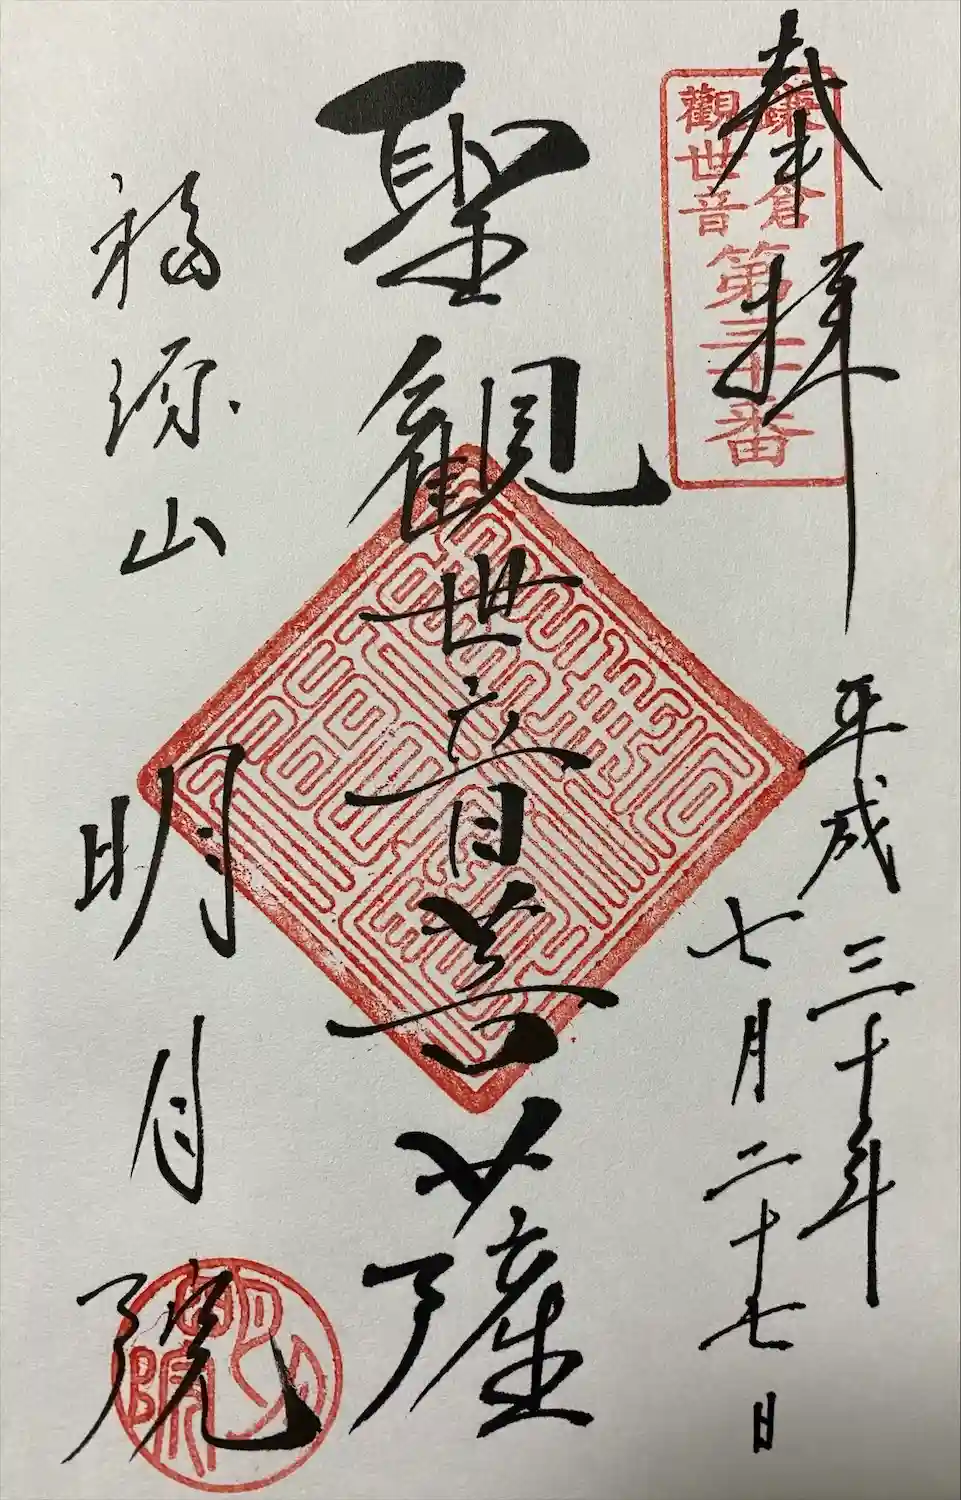 奉拝
鎌倉
観世音
第三十番
平成三十年
七月二十七日
聖観世音菩薩
福源山
明月院